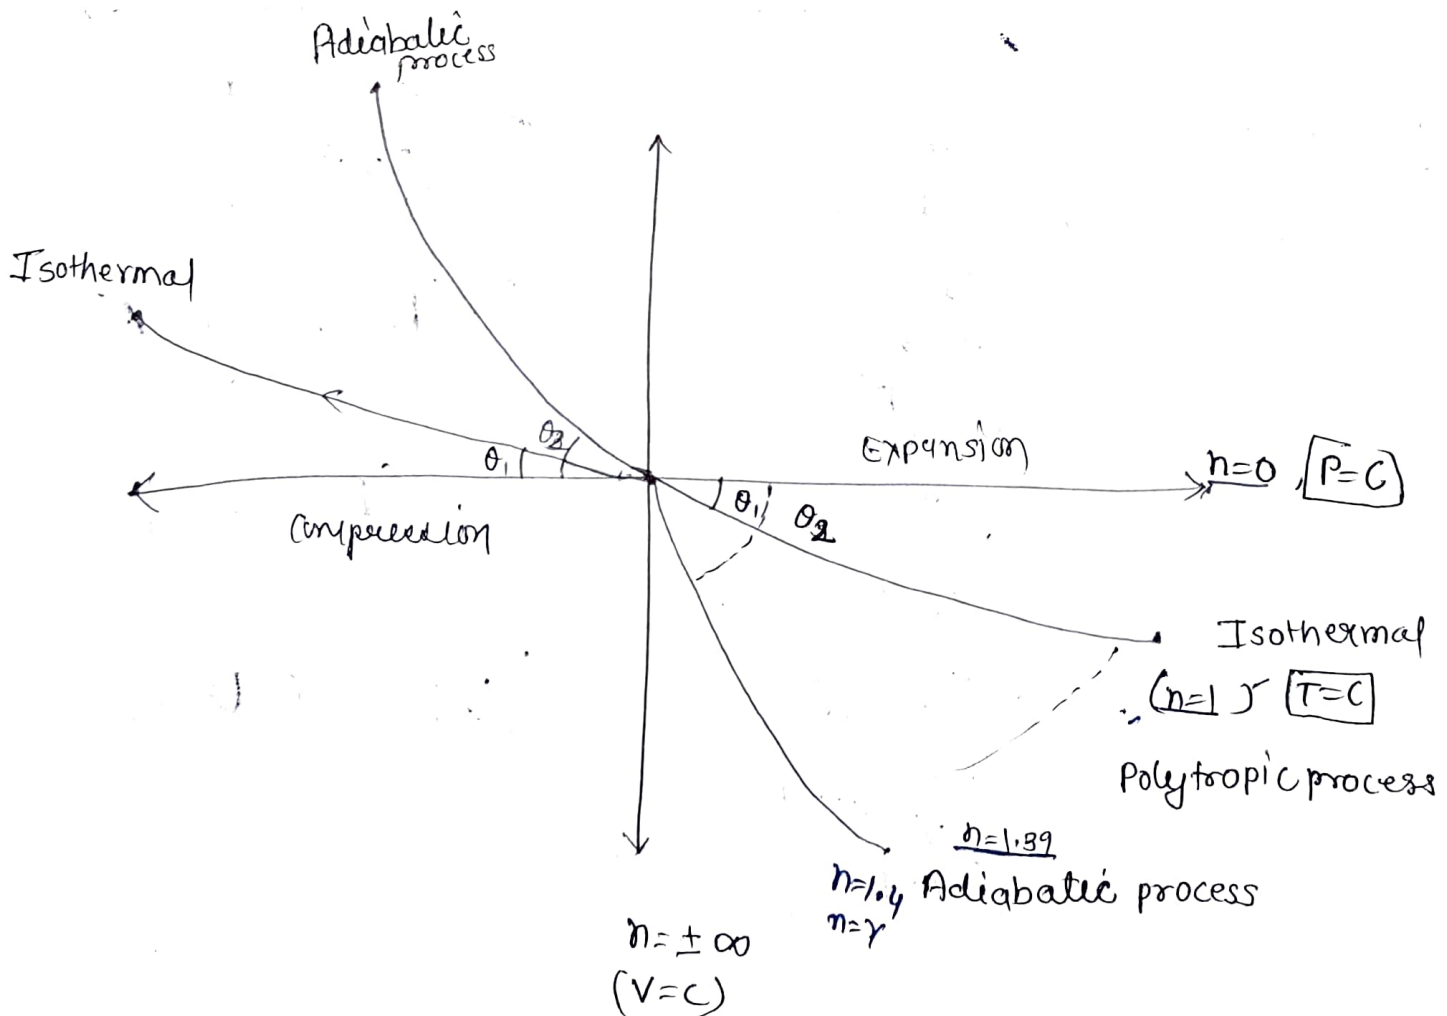 Adiabatic
process
Isothermal
θ2
θ1
Expansion
n=0, P=C
θ1
θ2
Compression
Isothermal
(n=1) T=C
Polytropic process
n=1.39
n=1.4 Adiabatic process
n=γ
n=±∞
(V=C)